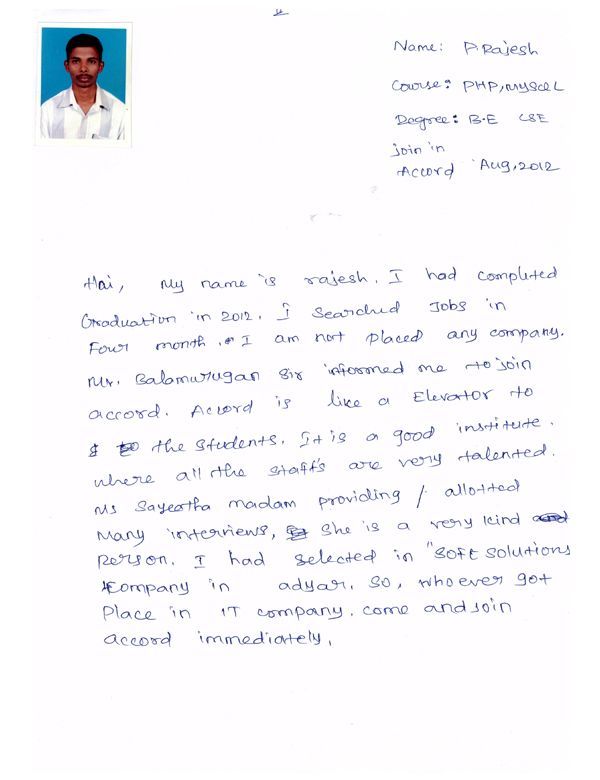 Name: P.Rajesh
Course: PHP, MySQL
Degree: B.E CSE
join in
Accord Aug, 2012
Hai, My name is rajesh. I had completed
Graduation in 2012. I searched Jobs in
Four month. I am not placed any company.
Mr. Balamurugan sir informed me to join
accord. Accord is like a Elevator to
the students. It is a good institute.
where all the staffs are very talented.
Ms Sayeetha madam providing / allotted
Many interviews, she is a very kind
person. I had selected in "Soft Solutions
Company in adyar. So, whoever got
Place in IT company. come and join
accord immediately.